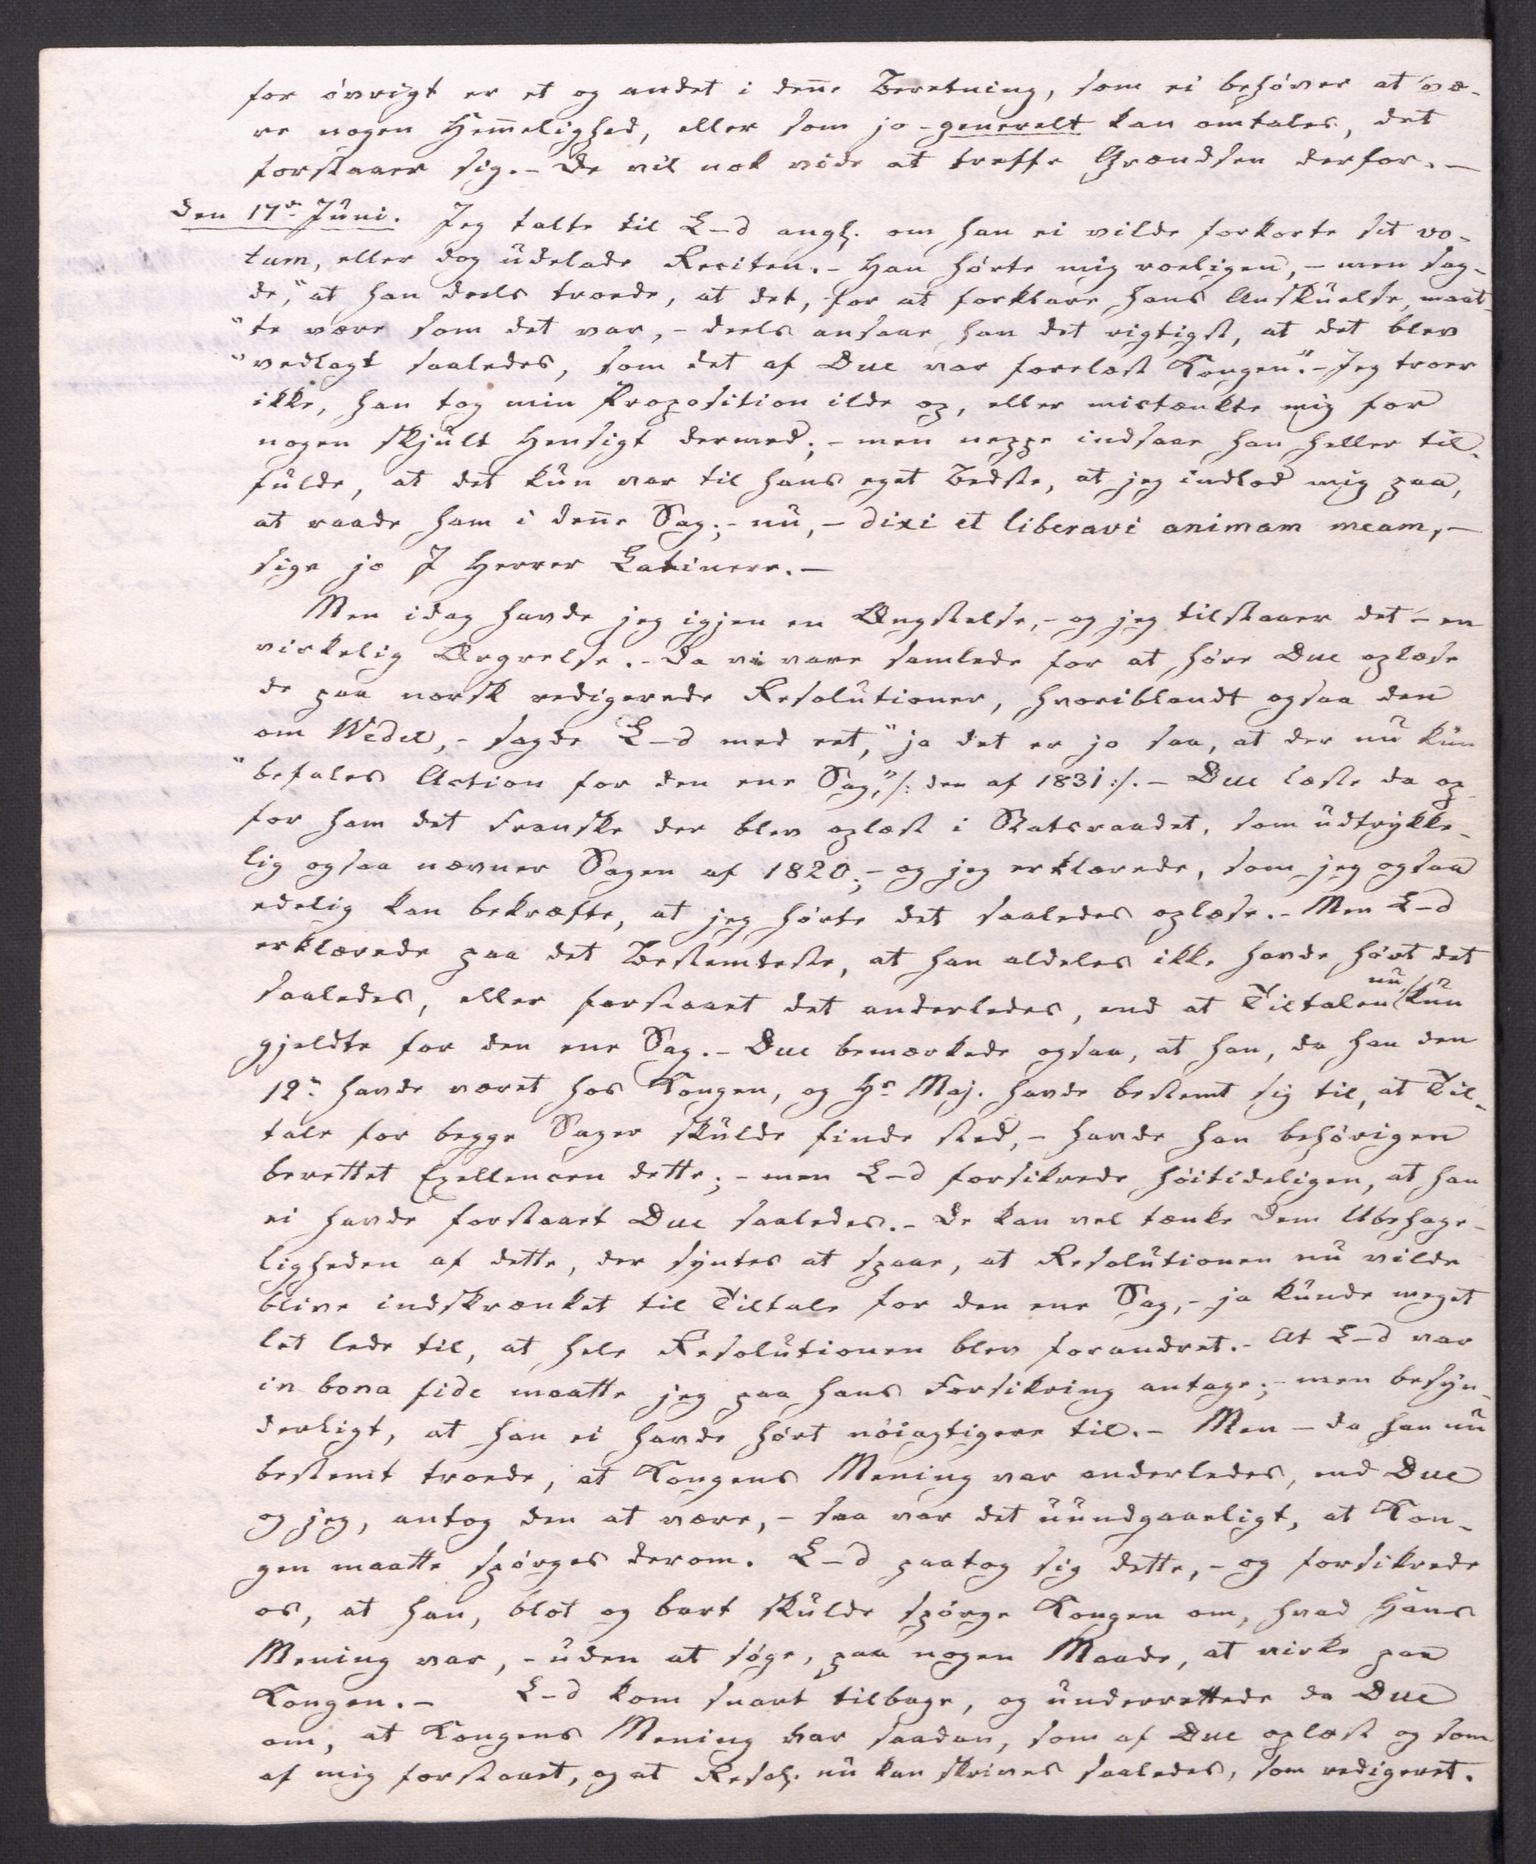 for övrigt er et og andet i denne Beretning, som ei behöver at væ-
re nogen Hemmelighed, eller som jo generelt kan omtales, det
forstaaer sig. - De vil nok vide at treffe Grændsen derfor. -
den 17de Juni. Jeg talte til L-d angl. om han ei vilde forkorte sit vo-
tum, eller dog udelade Reciten. - Han hörte mig roeligen, - men sag-
de, "at han deels troede, at det, for at forklare hans Anskuelse, maat-
"te være som det var, - deels ansaae han det rigtigst, at det blev
"vedlagt saaledes, som det af Due var forelæst Kongen". - Jeg troer
ikke, han tog min Proposition ilde op, eller mistænkte mig for
nogen skjult Hensigt dermed; - men neppe indsaae han heller til-
fulde, at det kun var til hans eget Bedste, at jeg indlod mig paa,
at raade ham i denne Sag; - nu, - dixi et liberavi animam meam, -
sige jo I Herrer Latinere. -
Men idag havde jeg igjen en Ængstelse, - og jeg tilstaaer det - en
virkelig Ærgrelse. - Da vi vare samlede for at höre Due oplæse
de paa norsk redigerede Resolutioner, hvoriblandt ogsaa den
om Wedel, - sagde L-d med eet, "ja det er jo saa, at der nu kun
"befales Action for den ene Sag," /: den af 1831 :/. - Due læste da op
for ham det franske der blev oplæst i Statsraadet, som udtrykke-
lig ogsaa nævner Sagen af 1820; - og jeg erklærede, som jeg ogsaa
edelig kan bekræfte, at jeg hörte det saaledes oplæse. - Men L-d
erklærede paa det Bestemteste, at han aldeles ikke havde hört det
saaledes, eller forstaaet det anderledes, end at Tiltalen nu kun
gjeldte for den ene Sag. - Due bemærkede ogsaa, at han, da han den
12te havde været hos Kongen, og Hs Maj. havde bestemt sig til, at Til-
tale for begge Sager skulde finde sted, - havde han behörigen
berettet Exellencen dette; - men L-d forsikrede höitideligen, at han
ei havde forstaaet Due saaledes. - De kan vel tænke Dem Ubehage-
ligheden af dette, der syntes at spaae, at Resolutionen nu vilde
blive indskrænket til Tiltale for den ene Sag, - ja kunde meget
let lede til, at hele Resolutionen blev forandret. - At L-d var
in bona fide maatte jeg paa hans Forsikring antage; - men besyn-
derligt, at han ei havde hört nöiagtigere til. - Men - da han nu
bestemt troede, at Kongens Mening var anderledes, end Due
og jeg, antog den at være, - saa var det uundgaaeligt, at Kon-
gen maatte spörges derom. L-d paatog sig dette, - og forsikrede
os, at han, blot og bart skulde spörge Kongen om, hvad Hans
Mening var, - uden at söge, paa nogen Maade, at virke paa
Kongen. - L-d kom snart tilbage, og underrettede da Due
om, at Kongens Mening var saadan, som af Due oplæst og som
af mig forstaaet, og at Resol. nu kan skrives saaledes, som redigeret.